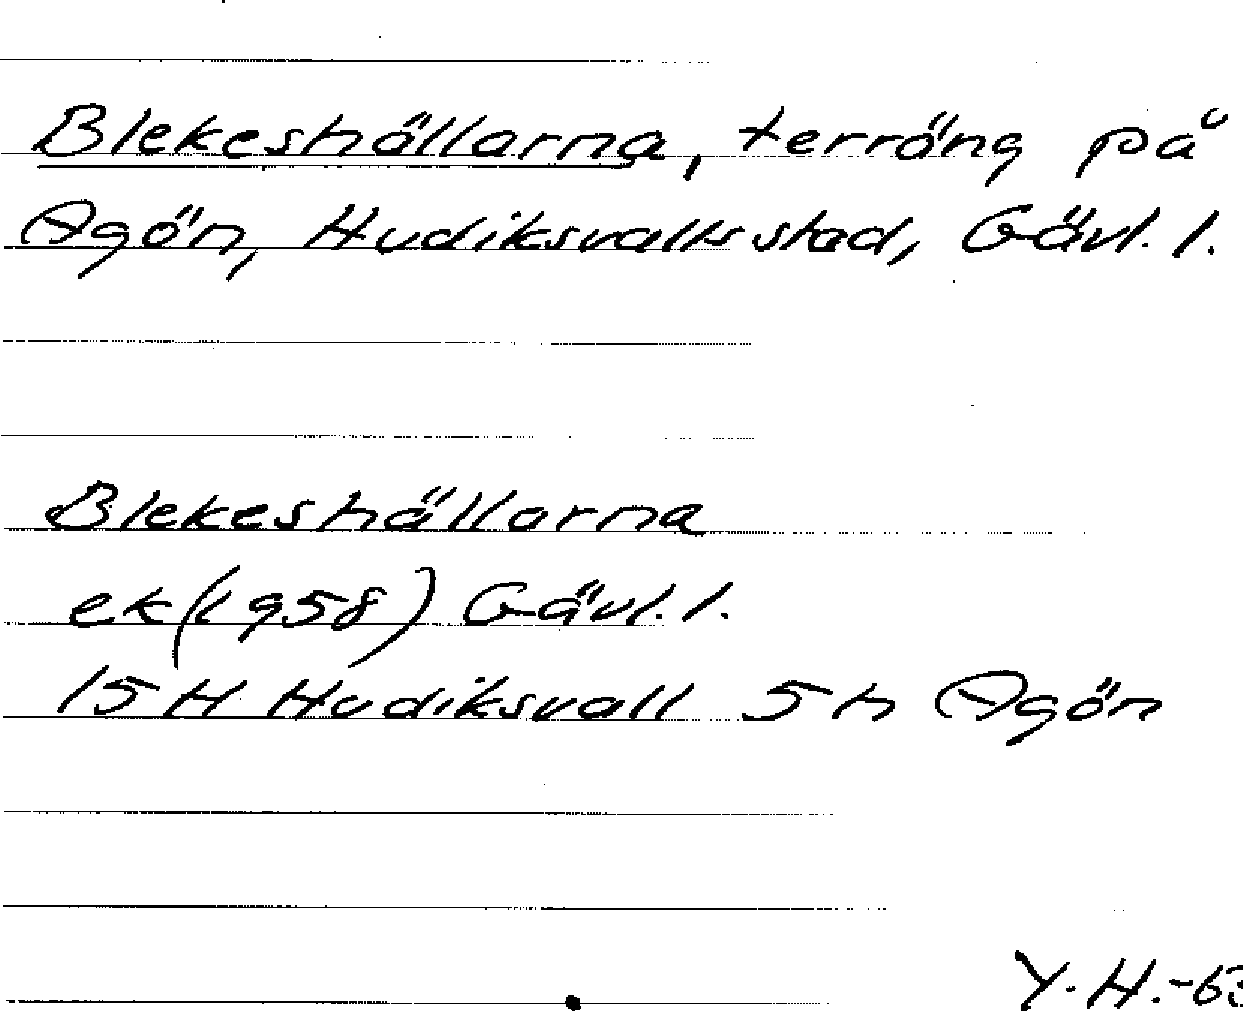 Blekeshällarna, terräng på
Agön, Hudiksvalls stad, Gävl. l.
Blekeshällarna
ek (1958) Gävl. l.
15 H Hudiksvall 5 h Agön
Y. H. -63